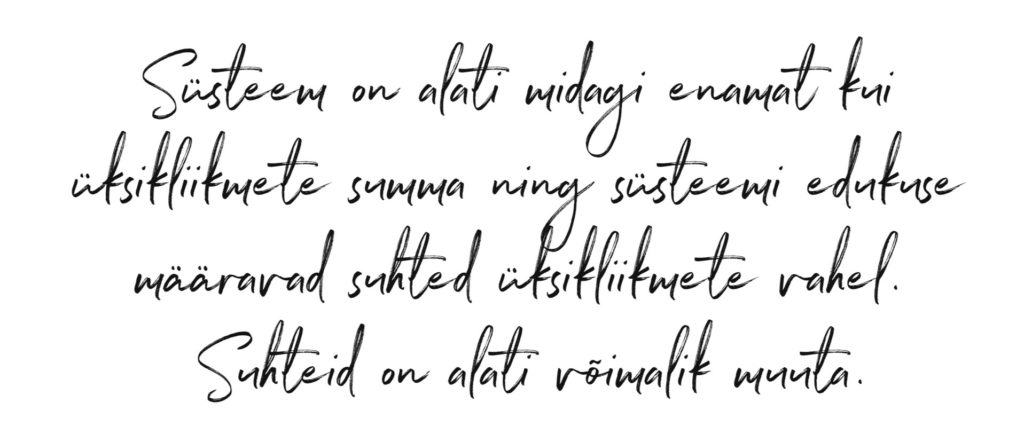 Süsteem on alati midagi enamat kui
üksikliikmete summa ning süsteemi edukuse
määravad suhted üksikliikmete vahel.
Suhteid on alati võimalik muuta.